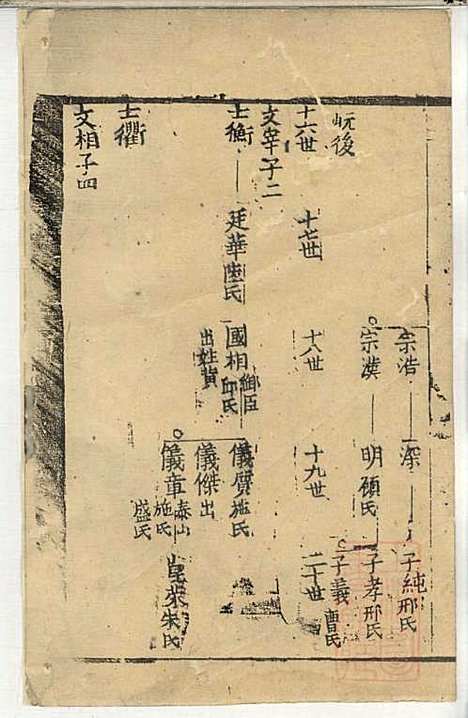 宗浩 深 子純邢氏
宗漢 明顧氏 子孝邢氏
子義曹氏
岘後
十六世 十七世 十八世 十九世 二十世
文宰子二
士衡 廷華陸氏 國相鄉臣邱氏 儀廣施氏
出姓黃 儀傑出
儀章泰山施氏盛氏 朱氏
士衢
文相子四